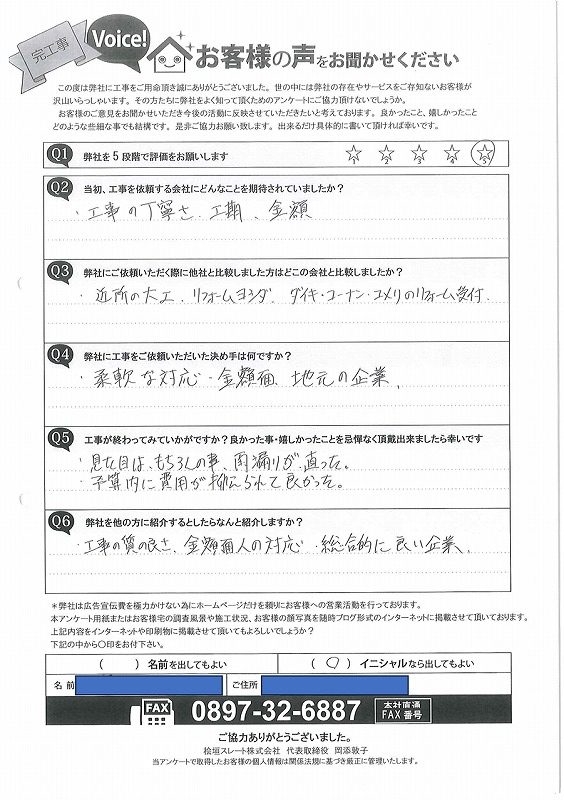 完工事
Voice!
お客様の声をお聞かせください
この度は弊社に工事をご用命頂き誠にありがとうございました。世の中には弊社の存在やサービスをご存知ないお客様が
沢山いらっしゃいます。その方たちに弊社をよく知って頂くためのアンケートにご協力頂けないでしょうか。
お客様のご意見をお聞かせいただき今後の活動に反映させていただきたいと考えております。良かったこと、嬉しかったこと
どのような些細な事でも結構です。是非ご協力お願い致します。出来るだけ具体的に書いて頂ければ幸いです。
Q1 弊社を5段階で評価をお願いします 1 2 3 4 5
Q2 当初、工事を依頼する会社にどんなことを期待されていましたか?
・工事の丁寧さ、工期、金額
Q3 弊社にご依頼いただく際に他社と比較しました方はどこの会社と比較しましたか?
・近所の大工、リフォームヨシダ、ダイキ・コーナン・コメリのリフォーム受付.
Q4 弊社に工事をご依頼いただいた決め手は何ですか?
・柔軟な対応・金額面、地元の企業、
Q5 工事が終わってみていかがですか?良かった事・嬉しかったことを忌憚なく頂戴出来ましたら幸いです
・見た目は、もちろんの事、雨漏りが直った。
・予算内に費用が抑えられて良かった。
Q6 弊社を他の方に紹介するとしたらなんと紹介しますか?
・工事の質の良さ、金額面人の対応・総合的に良い企業、
*弊社は広告宣伝費を極力かけない為にホームページだけを頼りにお客様への営業活動を行っております。
本アンケート用紙またはお客様宅の調査風景や施工状況、お客様の顔写真を随時ブログ形式のインターネットに掲載させて頂いております。
上記内容をインターネットや印刷物に掲載させて頂いてもよろしいでしょうか?
下記の中から〇印をお付下さい。
( )名前を出してもよい (〇)イニシャルなら出してもよい
名前 ご住所
FAX 0897-32-6887 本社直通 FAX番号
ご協力ありがとうございました。
桧垣スレート株式会社 代表取締役 岡添敦子
当アンケートで取得したお客様の個人情報は関係法規に基づき厳正に管理いたします。